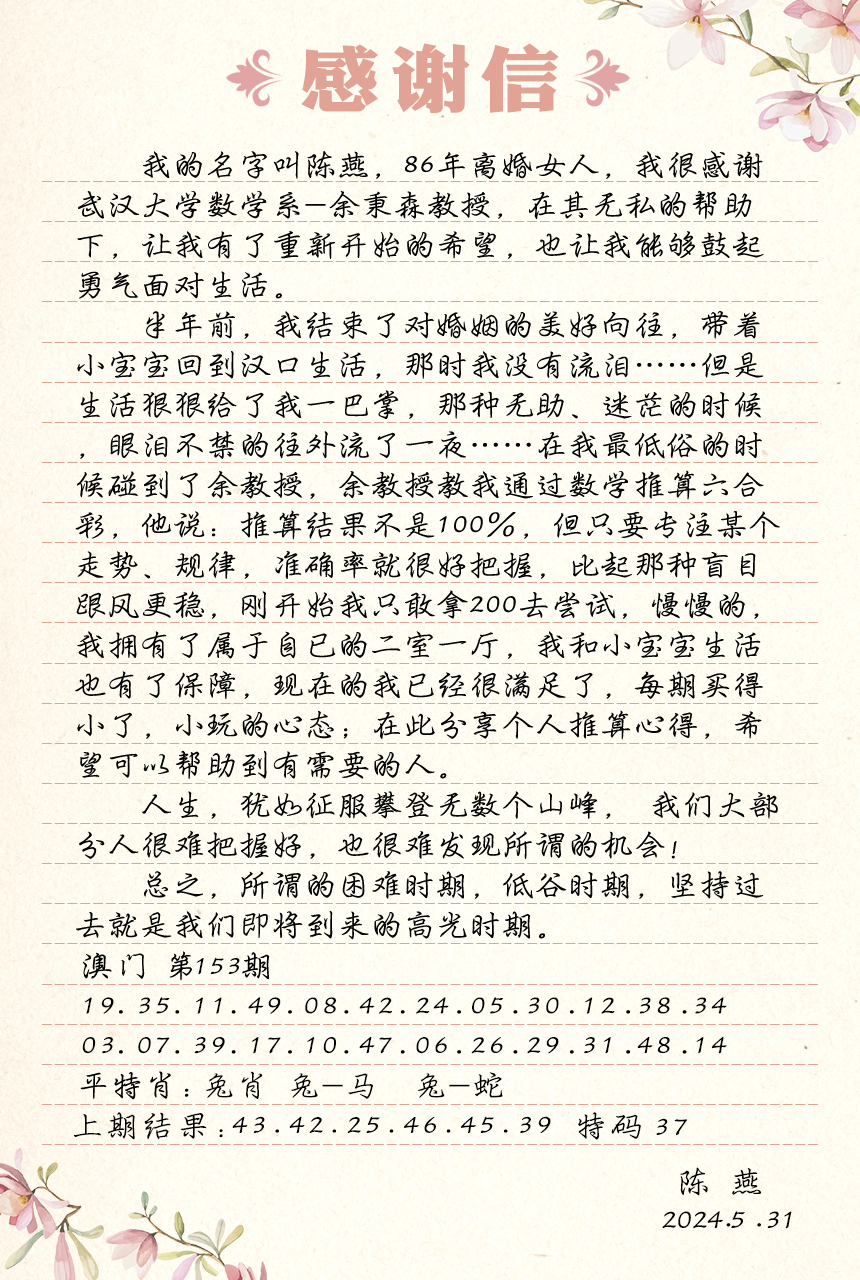 感谢信
我的名字叫陈燕，86年离婚女人，我很感谢
武汉大学数学系—余秉森教授，在其无私的帮助
下，让我有了重新开始的希望，也让我能够鼓起
勇气面对生活。
半年前，我结束了对婚姻的美好向往，带着
小宝宝回到汉口生活，那时我没有流泪……但是
生活狠狠给了我一巴掌，那种无助、迷茫的时候
，眼泪不禁的往外流了一夜……在我最低俗的时
候碰到了余教授，余教授教我通过数学推算六合
彩，他说：推算结果不是100%，但只要专注某个
走势、规律，准确率就很好把握，比起那种盲目
跟风更稳，刚开始我只敢拿200去尝试，慢慢的，
我拥有了属于自已的二室一厅，我和小宝宝生活
也有了保障，现在的我已经很满足了，每期买得
小了，小玩的心态；在此分享个人推算心得，希
望可以帮助到有需要的人。
人生，犹如征服攀登无数个山峰， 我们大部
分人很难把握好，也很难发现所谓的机会！
总之，所谓的困难时期，低谷时期，坚持过
去就是我们即将到来的高光时期。
澳门 第153期
19.35.11.49.08.42.24.05.30.12.38.34
03.07.39.17.10.47.06.26.29.31.48.14
平特肖：兔肖 兔—马 兔—蛇
上期结果：43.42.25.46.45.39 特码 37
陈 燕
2024.5.31